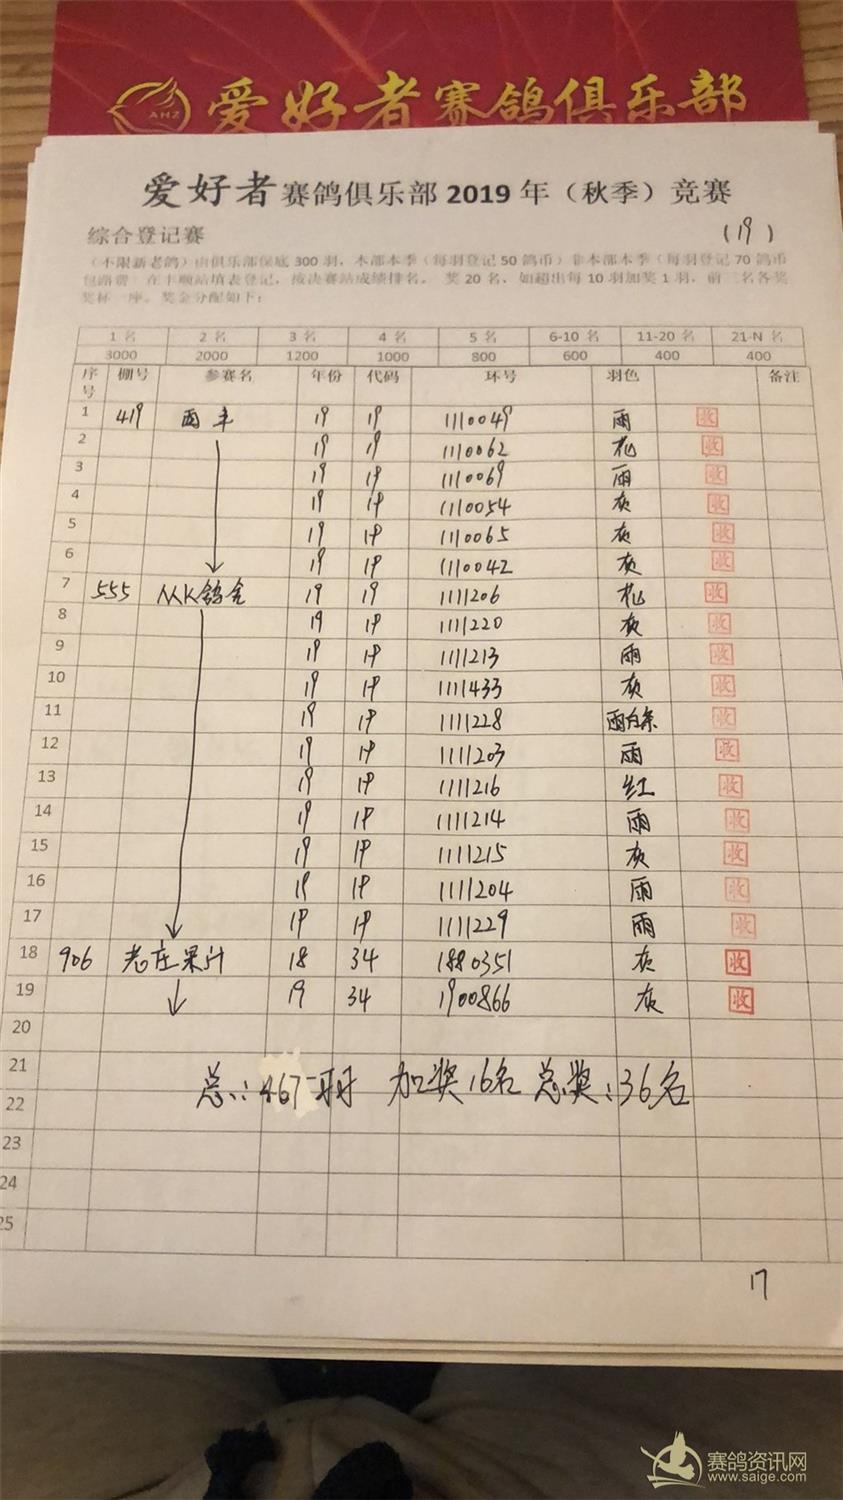 AHZ 爱好者赛鸽俱乐部
爱好者赛鸽俱乐部2019年（秋季）竞赛
综合登记赛 (19)
（不限新老鸽）由俱乐部保底300羽，本部本季（每羽登记50鸽币）非本部本季（每羽登记70鸽币
在丰顺站填表登记，按决赛站成绩排名。 奖20名，如超出每10羽加奖1羽，前三名各奖
奖杯一座。奖金分配如下：
1名 2名 3名 4名 5名 6-10名 11-20名 21-N名
3000 2000 1200 1000 800 600 400 400
序号 棚号 参赛名 年份 代码 环号 羽色 备注
1 419 西丰 19 19 1110049 雨 收
2 19 19 1110062 花 收
3 19 19 1110069 雨 收
4 19 19 1110054 灰 收
5 19 19 1110065 灰 收
6 19 19 1110042 灰 收
7 555 从K鸽舍 19 19 1111206 花 收
8 19 19 1111220 灰 收
9 19 19 1111213 雨 收
10 19 19 1111433 灰 收
11 19 19 1111228 雨白条 收
12 19 19 1111203 雨 收
13 19 19 1111216 红 收
14 19 19 1111214 雨 收
15 19 19 1111215 灰 收
16 19 19 1111204 雨 收
17 19 19 1111229 雨 收
18 906 老庄果汁 18 34 1880351 灰 收
19 19 34 1900866 灰 收
20
21
总：467羽 加奖16名 总奖：36名
22
23
24
25
17
赛鸽资讯网
www.saige.com